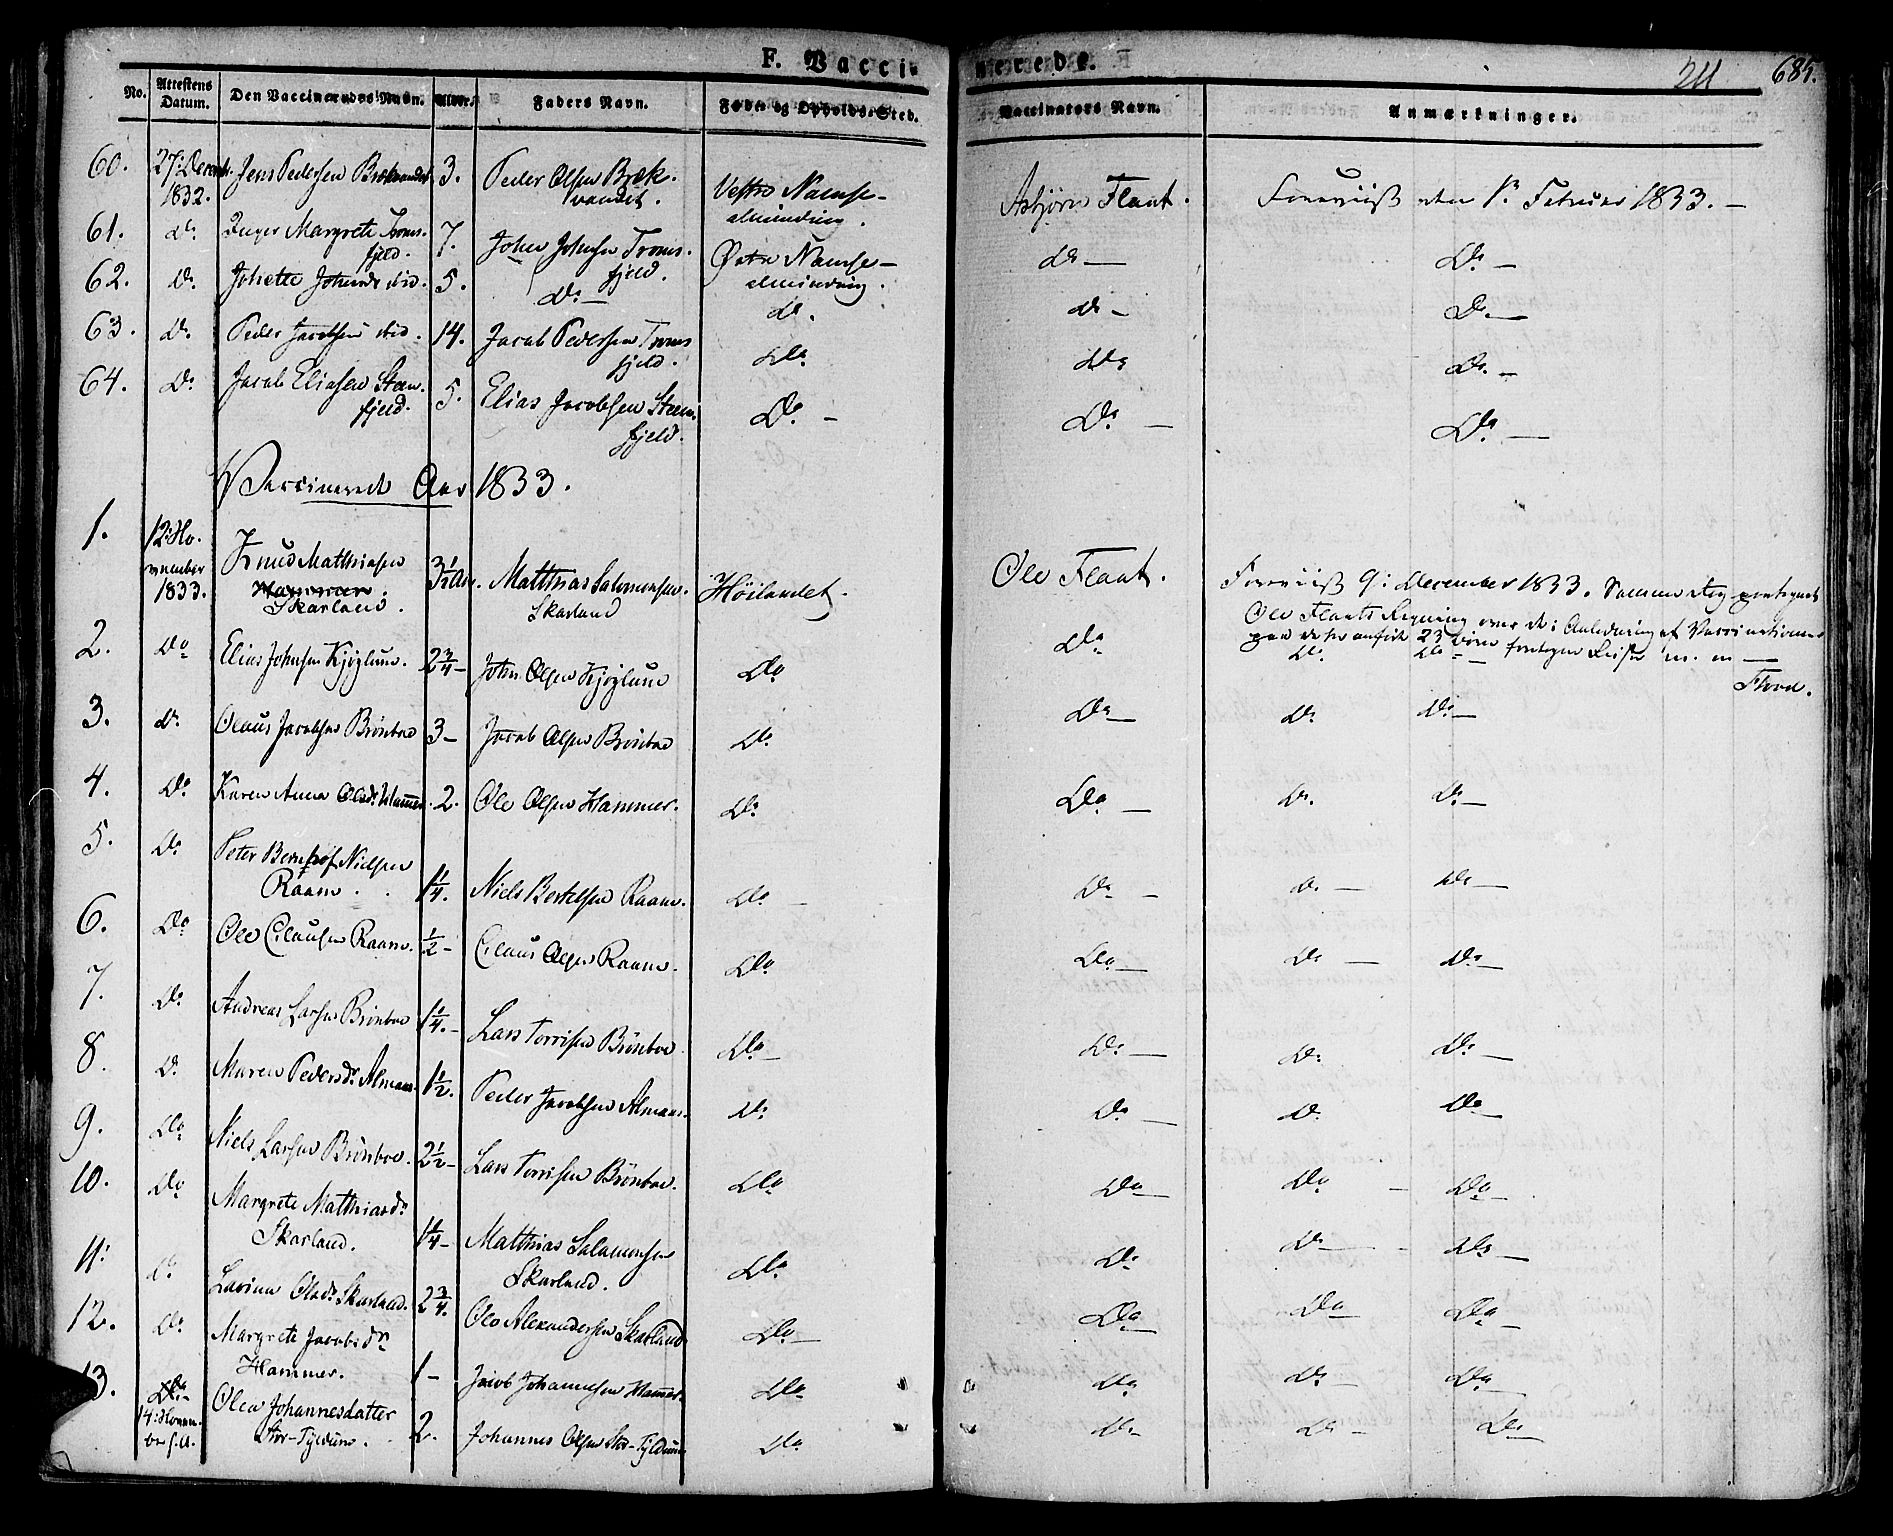 F. Vaccinerede.
211
685.
No. Attestens Datum. Den Vaccineredes Navn. Alder. Faders Navn. Føde og Opholds-Sted. Vaccinators Navn. Anmærkninger.
60. 27: Decemb. 1832. Jens Pedersen Brækvandet 3. Peder Olsen Brækvandet. Vestre Namsealminding. Asbjørn Flaat. Foreviist den 1. Februar 1833. —
61. do. Inger Margrete Tromsfjeld. 7. Johan Johnsen Tromsfjeld. Østre Namsealminding. do — Do —
62. do. Johette Johnsdr ibid. 5. Do — do. do — Do. —
63. do. Peder Jacobsen ibid. 14. Jacob Pedersen Tromsfjeld. Do Do Do. —
64. Do. Jacob Eliasen Steenfjeld. 5. Elias Jacobsen Steenfjeld. Do. — Do. — Do —
Vaccinerede Aar 1833.
1. 12: November 1833. Knud Mathiasen Hammer. Skarland. 3½ Aar. Matthias Salomonsen Skarland Höilandet. Ole Flaat. Foreviist 9: December 1833. Samme Dag paategnet
Ole Flaats Regning over de i Anledning af Vaccinationen
paa de her anførte 23 Børn foretagne Reiser m. m —
2. Do Elias Johnsen Kjøglum. 2¾ — John Olsen Kjøglum Do Do Do. Do —
Flood.
3. do. Olaus Jacobsen Brönboe 3 — Jacob Olsen Brönboe Do. Do — Do. Do —
4. Do. Karen Anna Olsdr Hammer. 2. Ole Olsen Hammer. Do. Do — Do. Do. —
5. Do. Peter Nielsen Raam. 1¼. Niels Bertelsen Raam. Do — Do. — Do — Do —
6. Do Ole Clausen Raam. ½ — Claus Olsen Raam. Do Do — Do — Do —
7. Do. Andreas Larsen Brönboe 1¼. — Lars Torrisen Brönboe Do — Do — Do. Do —
8. Do. Maren Pedersdr Almaas. 1½. Peder Jacobsen Almaas. Do. Do — Do. Do —
9. Do Niels Larsen Brönboe. 2½ — Lars Torrisen Brönboe. Do Do — Do — Do —
10. Do Margrete Matthiasdr Skarland. 1¼ — Matthias Salamonsen Skarland. Do. Do. Do — Do —
11: do. Larina Olsdr Skarland. 2¾. Ole Alexandersen Skarland Do — Do — Do — Do —
12. Do. Margrete Jacobsdr Hammer. 1 — Jacob Johannesen Hammer Do Do Do — Do —
13. Do. 14: November s. A. Olea Johannesdatter Stor-Tyldum. 2. Johannes Olsen Stor-Tyldum Do Do — Do — Do —